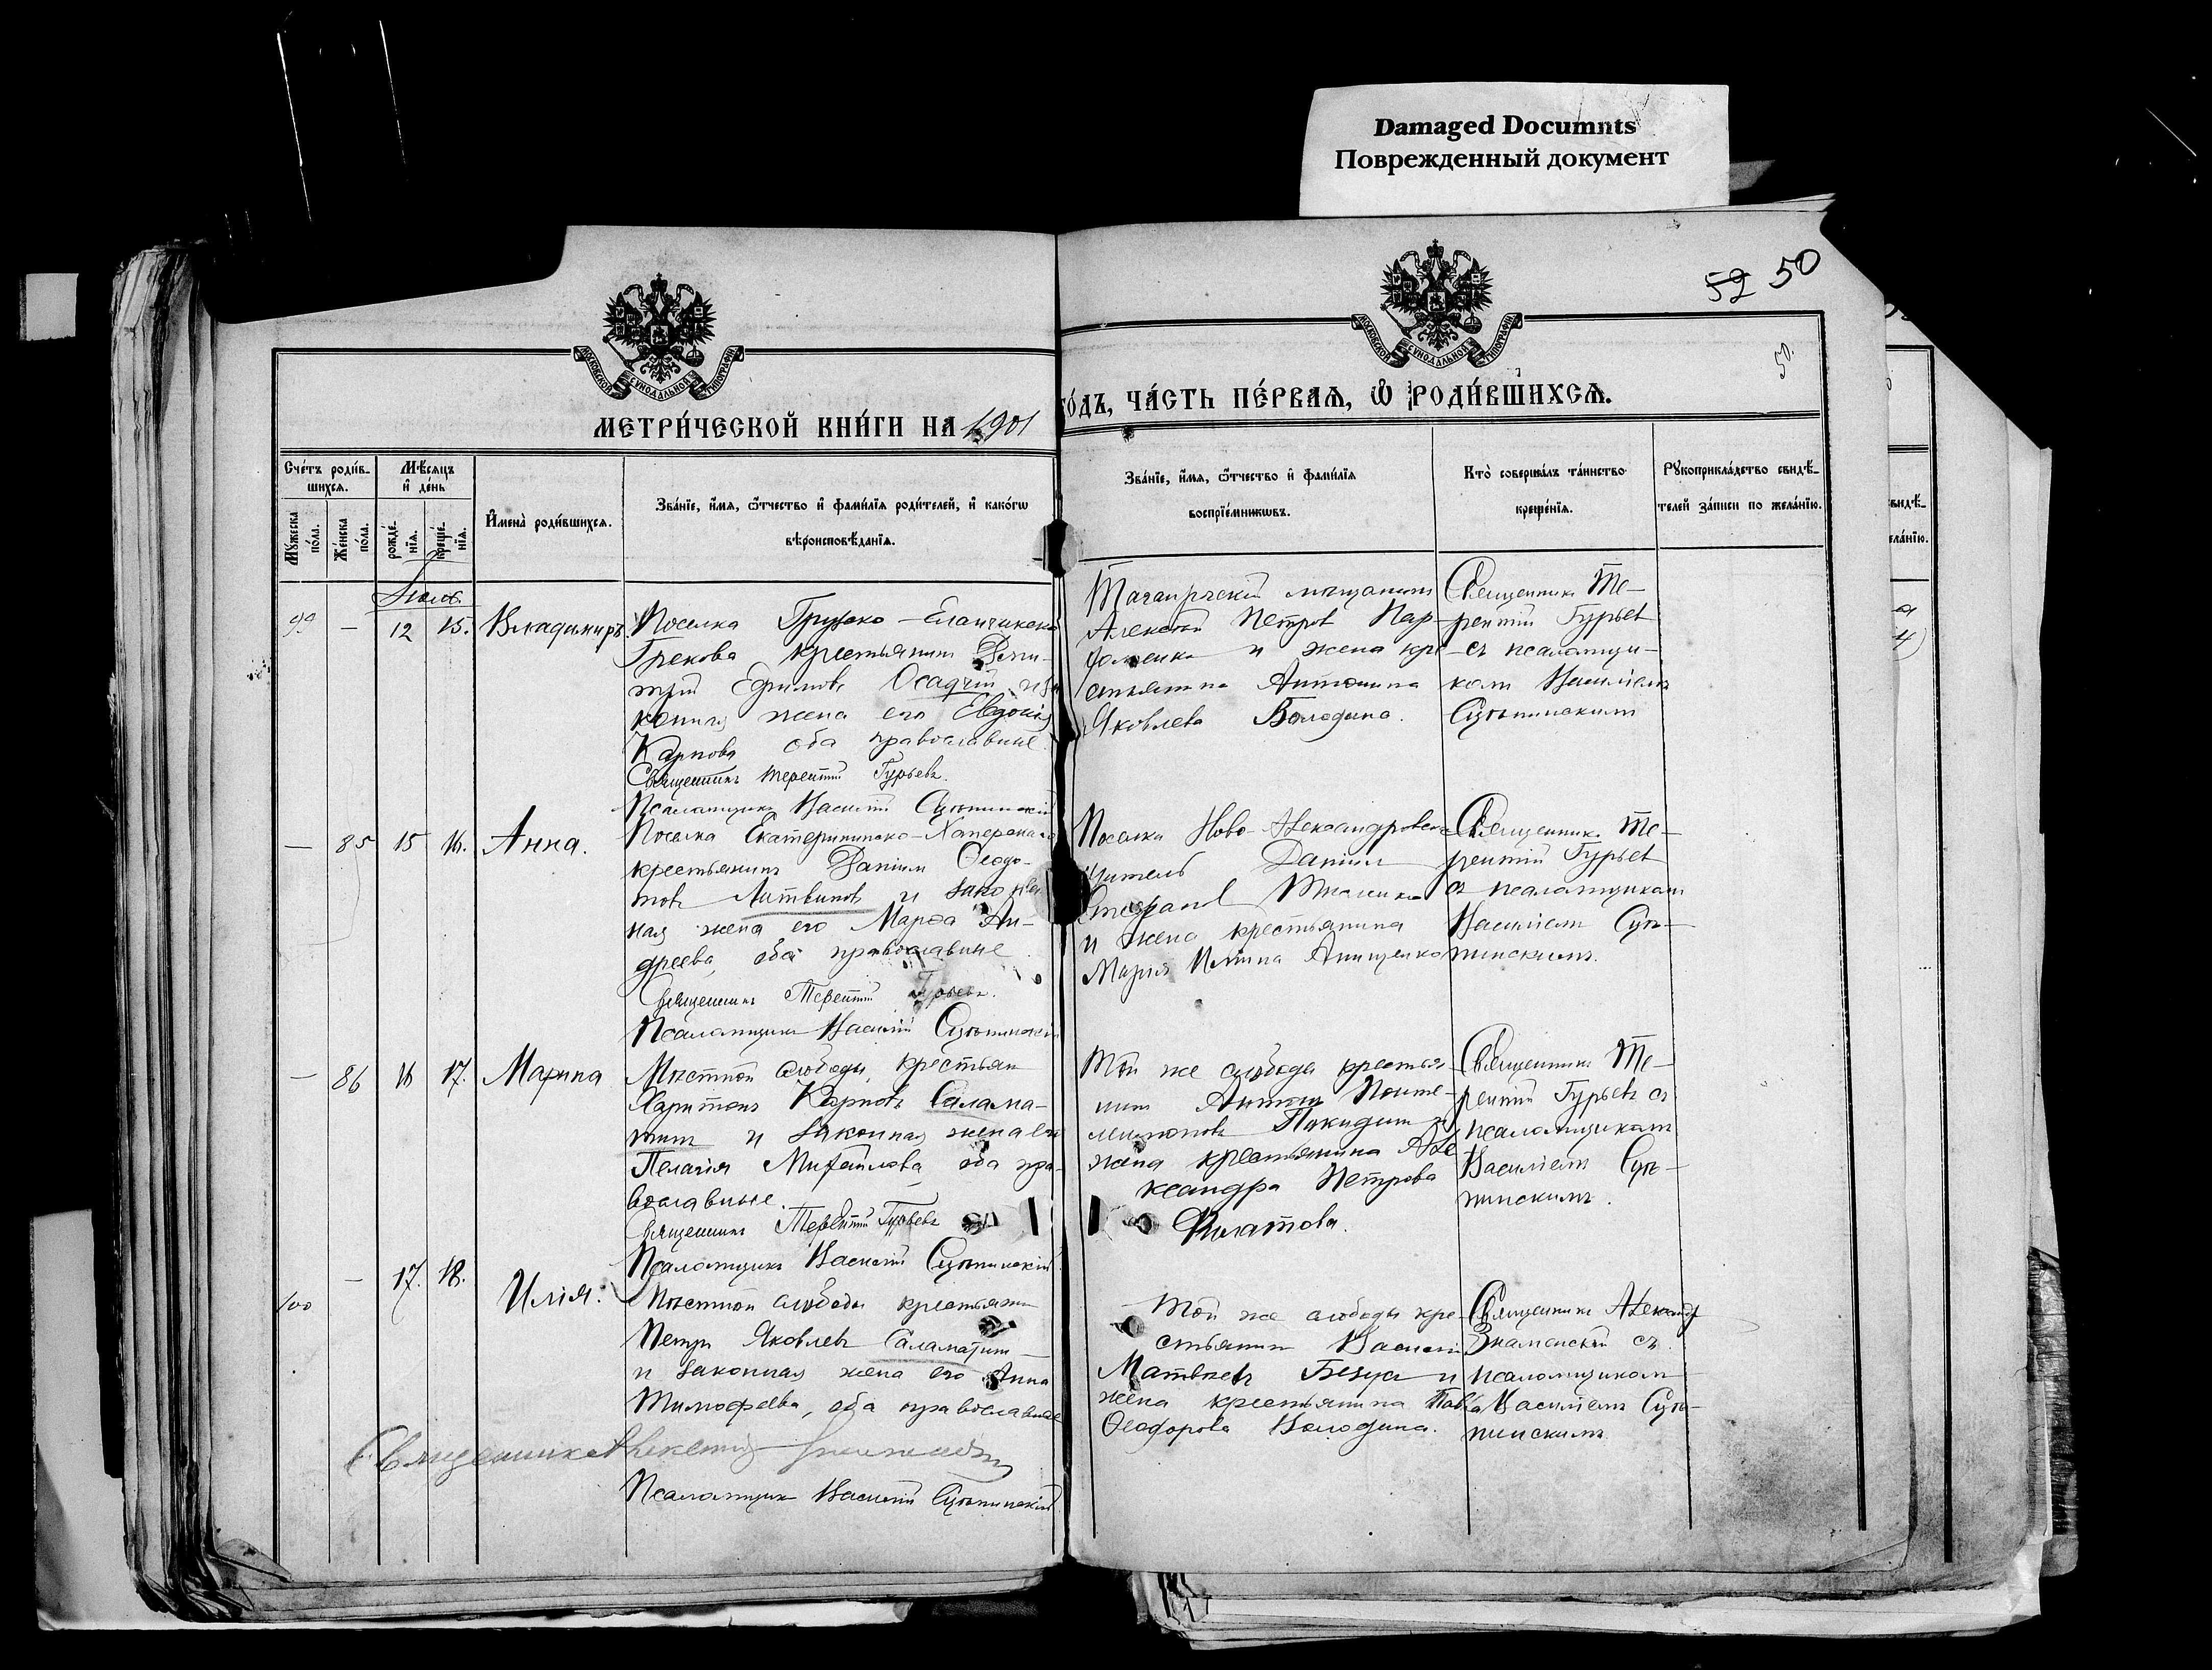 Damaged Documnts
Поврежденный документ
52 50
50.
МОСКОВСКОЙ СѴНОДАЛЬНОЙ ТИПОГРАФІИ
МОСКОВСКОЙ СѴНОДАЛЬНОЙ ТИПОГРАФІИ
МЕТРИ́ЧЕСКОЙ КНИ́ГИ НА 1901
ГО́ДЪ, ЧА́СТЬ ПЕ́РВАѦ, Ѿ РОДИ́ВШИХСѦ.
Сче́тъ роди́в-
шихся.
Мѣ́сяцъ
и҆ де́нь
Мꙋжеска
по́ла.
Же́нска
по́ла.
рожде́-
нїѧ.
креще́-
нїѧ.
И҆мена̀ роди́вшихсѧ.
Зва́нїе, и҆́мѧ, ѻ҆́тчество и҆ фами́лїѧ роди́телей, и҆ како́гѡ
вѣроисповѣ́данїѧ.
Зва́нїе, и҆́мѧ, ѻ҆́тчество и҆ фами́лїѧ
воспрїе́мникѡвъ.
Кто̀ соверша́лъ та́инство
креще́нїѧ.
Рꙋкоприкла́дство свидѣ́-
телей за́писи по жела́нїю.
99 — 12 15. Владимиръ
Поселка Грузско-Еланчикско
Грекова крестьянинъ Дми-
трій Ефимовъ Осадчій и за
конная жена его Евдокія
Карпова оба православные
Священникъ Терентій Гурьевъ.
Псаломщикъ Василій
Таганрогскій мѣщанинъ
Алексѣй Петровъ Пар-
фоменко и жена кре-
стьянина Антонина
Яковлева Володина.
Священникъ Те-
рентій Гурьевъ
съ псаломщи-
комъ Василіемъ
— 85 15 16. Анна.
Поселка Екатериновско-Хапровска
крестьянинъ Даніилъ Ѳеодо-
товъ Литвиновъ и закон
ная жена его Марѳа Ан-
дреева, оба православные
Священникъ Терентій Гурьевъ.
Псаломщикъ Василій
Поселка Ново-Александровска
житель Даніилъ
и жена крестьянина
Марія Ильина Анищенко
Священникъ Те-
рентій Гурьевъ
съ псаломщикомъ
Василіемъ
— 86 16 17. Марина
Мѣстной слободы, крестьян
Харитонъ Карповъ Салама-
тинъ и законная жена его
Пелагія Михайлова, оба пра-
вославные.
Священникъ Терентій Гурьевъ
Псаломщикъ Василій
Той же слободы крестья
нинъ Антонъ Понте-
лимоновъ и
жена крестьянина Але
ксандра Петрова
Филатова.
Священникъ Те-
рентій Гурьевъ съ
псаломщикомъ
Василіемъ
100 — 17. 18. Илія.
Мѣстной слободы крестьянинъ
Петръ Яковлевъ Саламатинъ
и законная жена его Анна
Тимофеева, оба православные
Священникъ
Псаломщикъ Василій
Той же слободы кре-
стьянинъ Василій
Матвѣевъ и
жена крестьянина
Ѳеодорова Володина.
Священникъ
Знаменскій съ
псаломщикомъ
Василіемъ